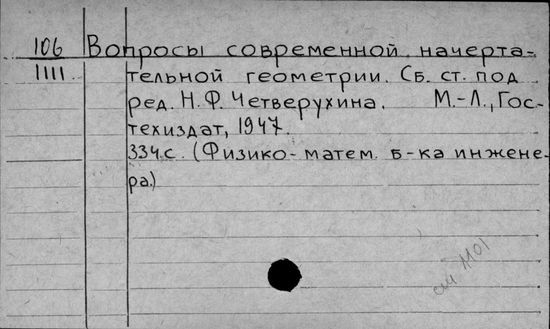 106 Вопросы современной начерта-
1111 тельной геометрии. Сб. ст. под
ред. Н. Ф. Четверухина. М.-Л., Гос-
техиздат, 1947.
334с. (Физико-матем. б-ка инжене-
ра.)